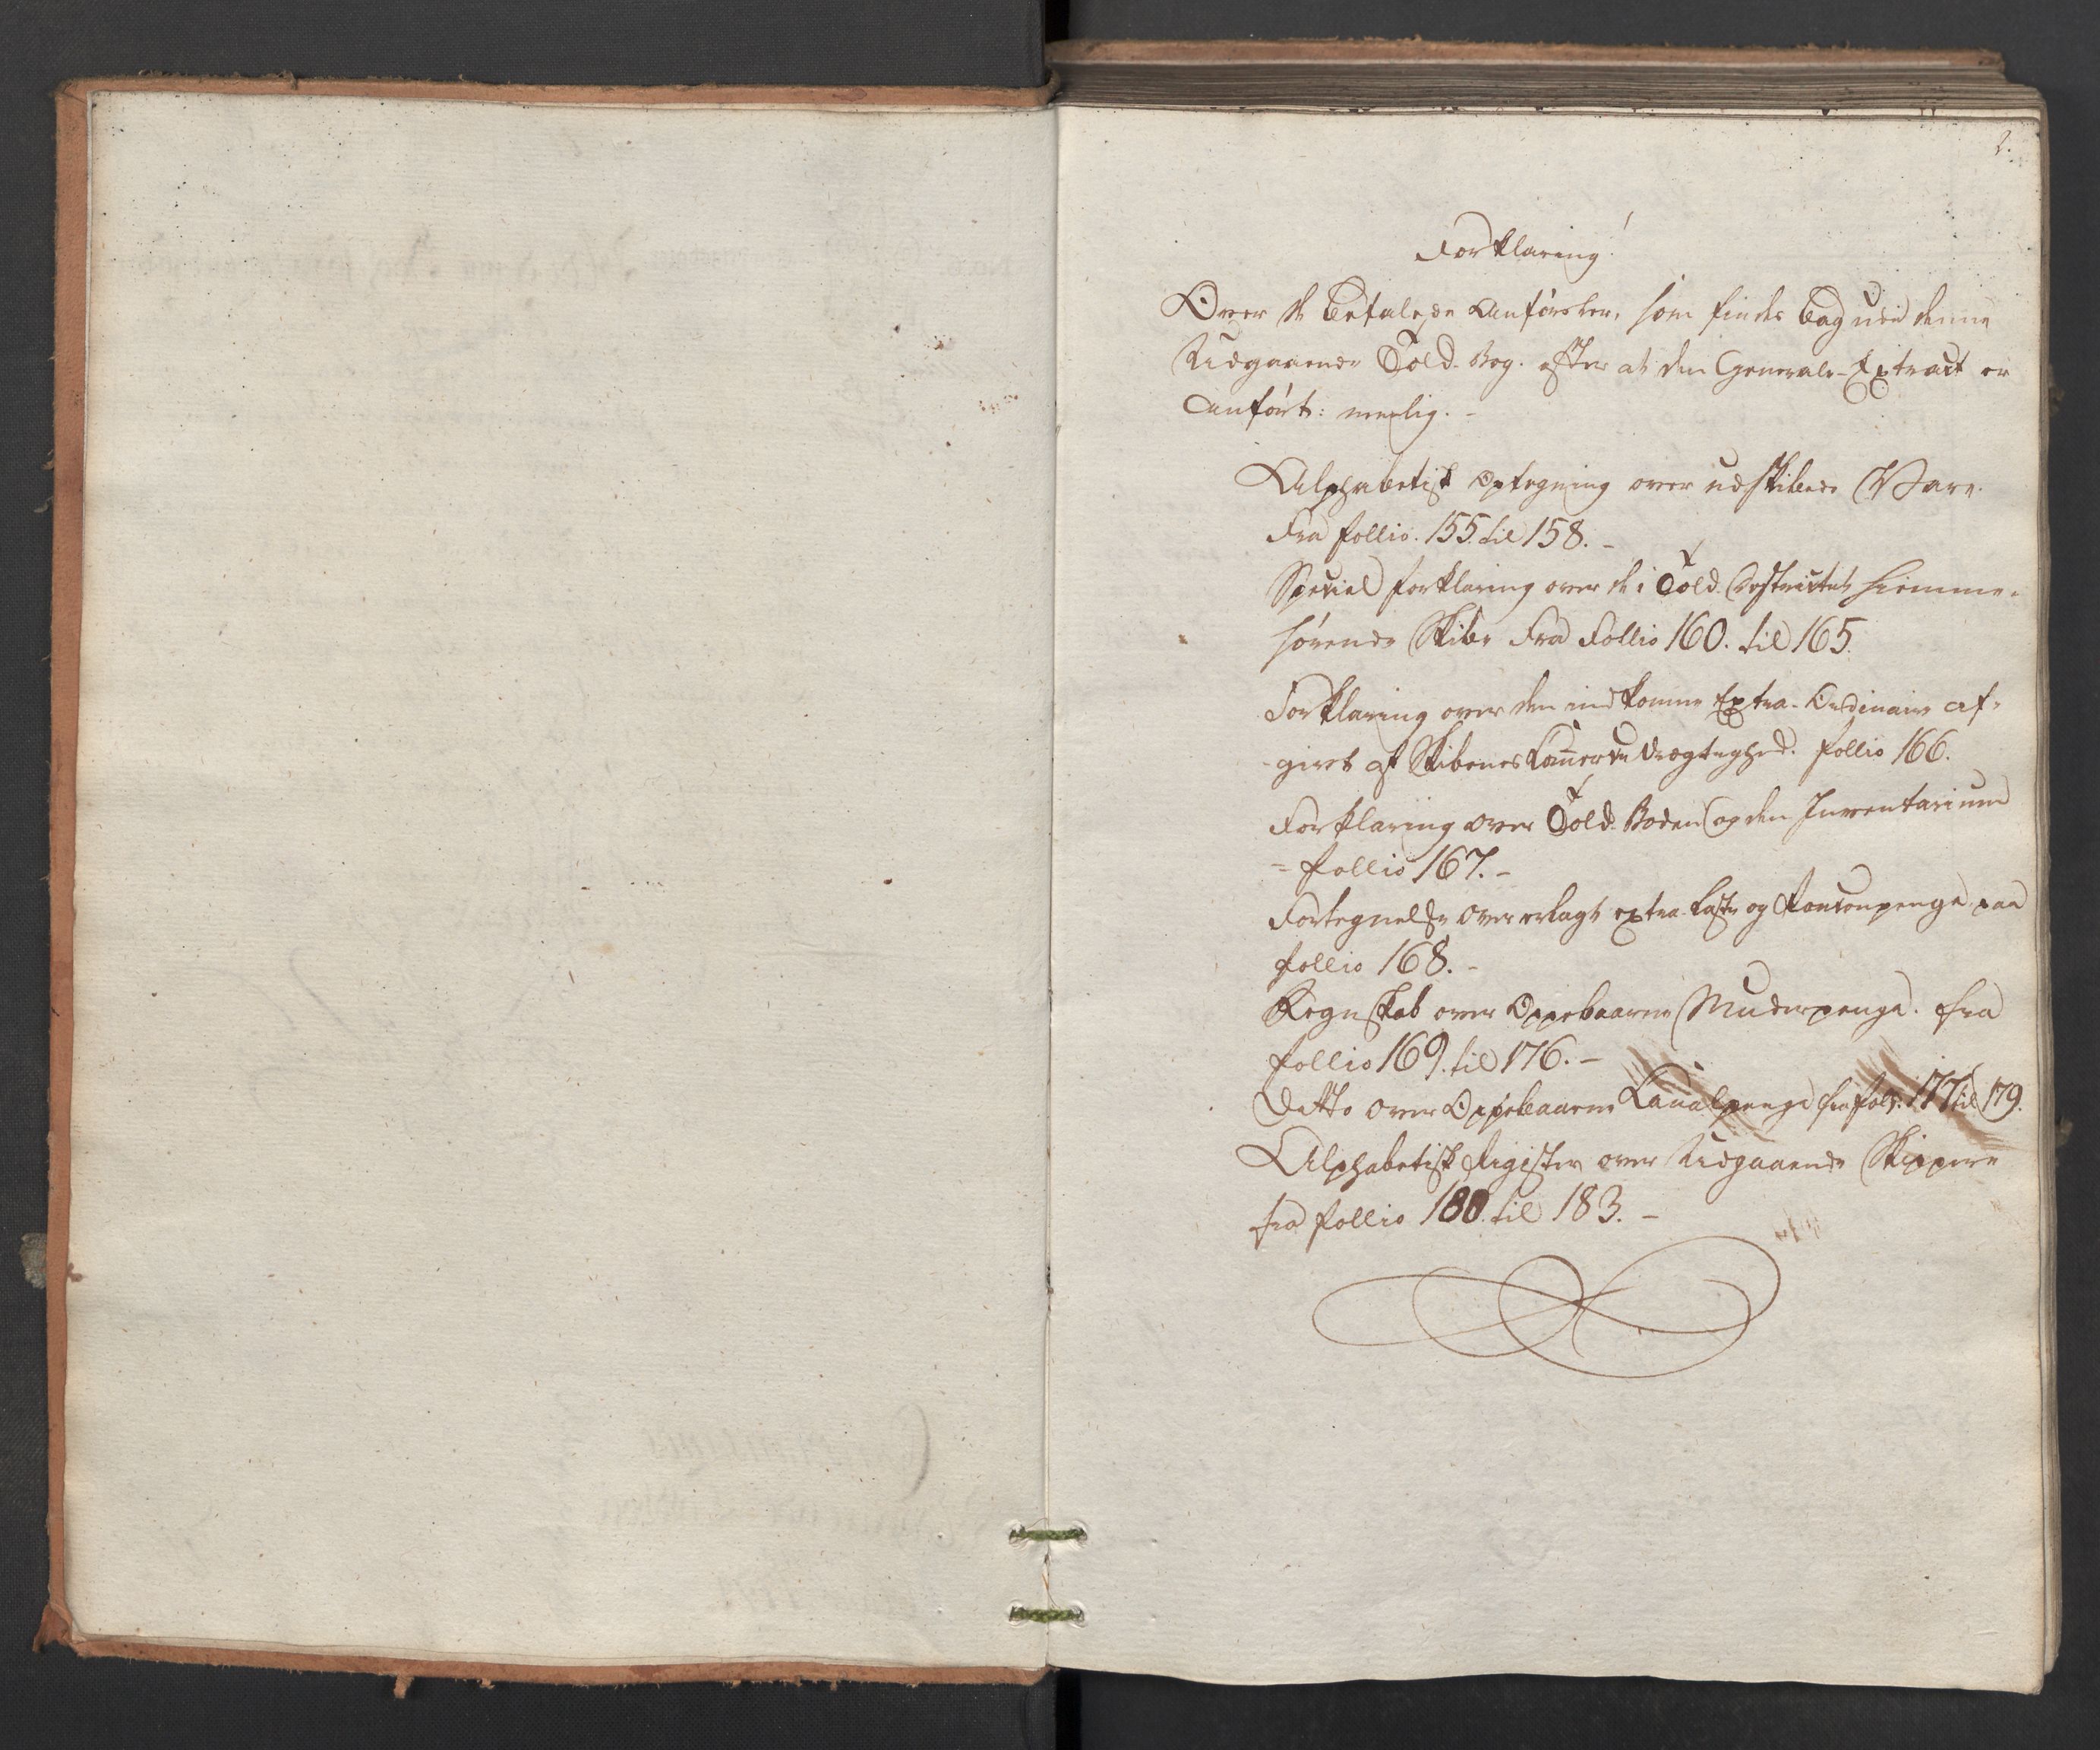 2.
Forklaring!
Over de betalede Anførsler, som findes bag udi denne
Udgaaende Told-Bog. efter at den Generale-Extract er
Anført: nemlig. -
Alphabetisk Optegning over udskibede Vare.
Fra follio. 155. til 158. -
Speciel forklaring over de i Told-Destrictet hiemme-
hørende Skibe Fra Follio 160. til 165.
Forklaring over den indkomne Extra-Ordinaire af-
-givt af Skibenes Comerce Drægtighed. follio 166.
Forklaring over Told-Boden og den Inventarium
= follio 167. -
Fortegnelse over erlagt extra Laste og penge paa
follio 168. -
Regnskab over Oppebaarne Muderpenge. fra
follio 169. til 176. -
Ditto over Oppebaarne Canalpenge fra fol. 177 til 179.
Alphabetisk Rigister over Udgaaende Skippere
fra follio 180. til 183. -